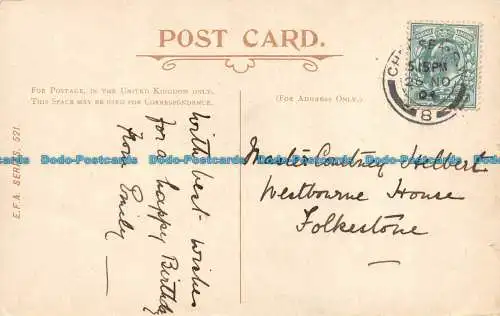 POST CARD.
FOR POSTAGE, IN THE UNITED KINGDOM ONLY,
THIS SPACE MAY BE USED FOR CORRESPONDENCE.
(FOR ADDRESS ONLY.)
E.F.A. SERIES. 521.
With best wishes
for a happy Birthday
from Emily
Master Courtney Hilbert
Westbourne House
Folkestone
5.15PM
NO
04
8
Dodo-Postcards Dodo-Postcards Dodo-Postcards Dodo-Postcards Dodo-Postcards
Dodo-Postcards Dodo-Postcards Dodo-Postcards Dodo-Postcards Dodo-Postcards